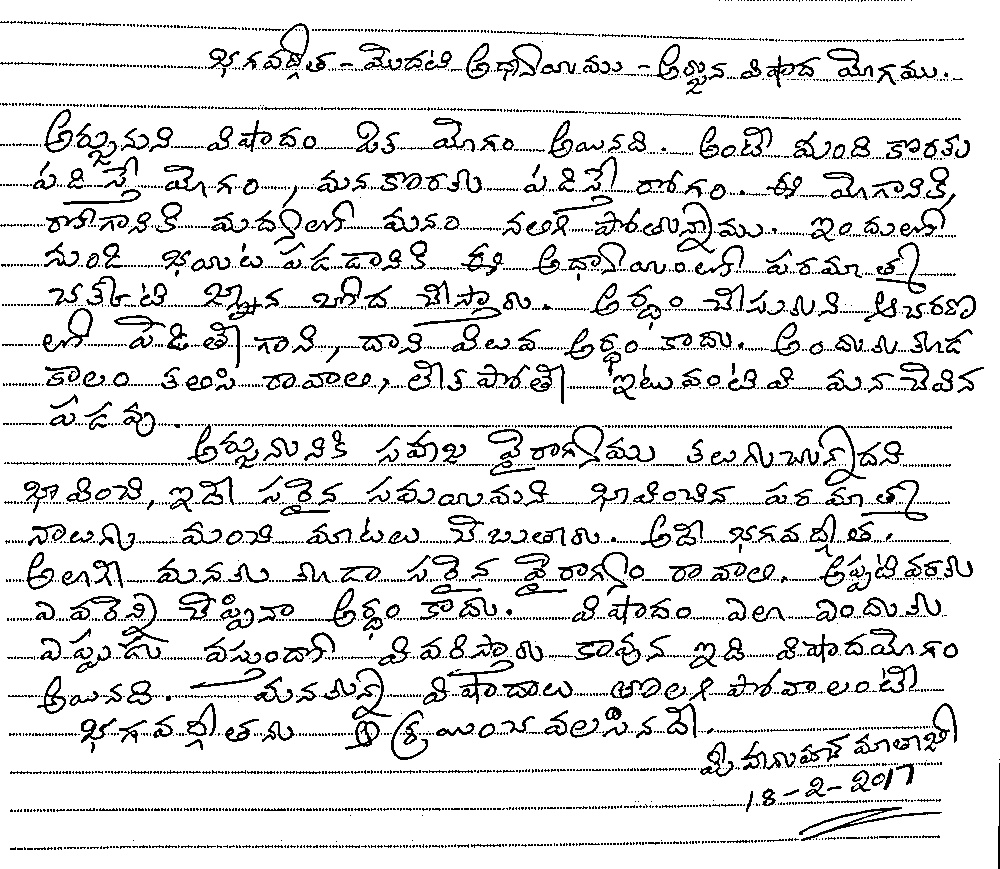 భగవద్గీత - మొదటి అధ్యాయము - అర్జున విషాద యోగము.
అర్జునుని విషాదం ఒక యోగం అయినది. అంటే మంది కొరకు
పడిస్తే యోగం, మనకొరకు పడిస్తే రోగం. ఈ యోగానికి,
రోగానికి మధ్యలో మనం నలిగి పోతున్నాము. ఇందులో
నుండి భయట పడడానికి ఈ అధ్యాయంలో పరమాత్మ
చక్కటి జ్ఞాన బోధ చేస్తారు. అర్ధం చేసుకుని ఆచరణ
లో పెడితే గాని, దాని విలువ అర్ధం కాదు. అందుకు కూడ
కాలం కలసి రావాలి, లేకపోతే ఇటువంటివి మన చెవిన
పడవు.
అర్జునునికి సహజ వైరాగ్యము కలుగుచున్నదని
భావించి, ఇదే సరైన సమయమని భావించిన పరమాత్మ
నాలుగు మంచి మాటలు చెబుతారు. అదే భగవద్గీత.
అలాగే మనకు కూడా సరైన వైరాగ్యం రావాలి. అప్పటివరకు
ఎవరెన్ని చెప్పినా అర్ధం కాదు. విషాదం ఎలా ఎందుకు
ఎప్పుడు వస్తుందో వివరిస్తారు కావున ఇది విషాదయోగం
అయినది. మనకున్న విషాదాలు తొలగి పోవాలంటే
భగవద్గీతను ఆశ్రయించవలసినదే.
మాతాజీ
18-2-2017